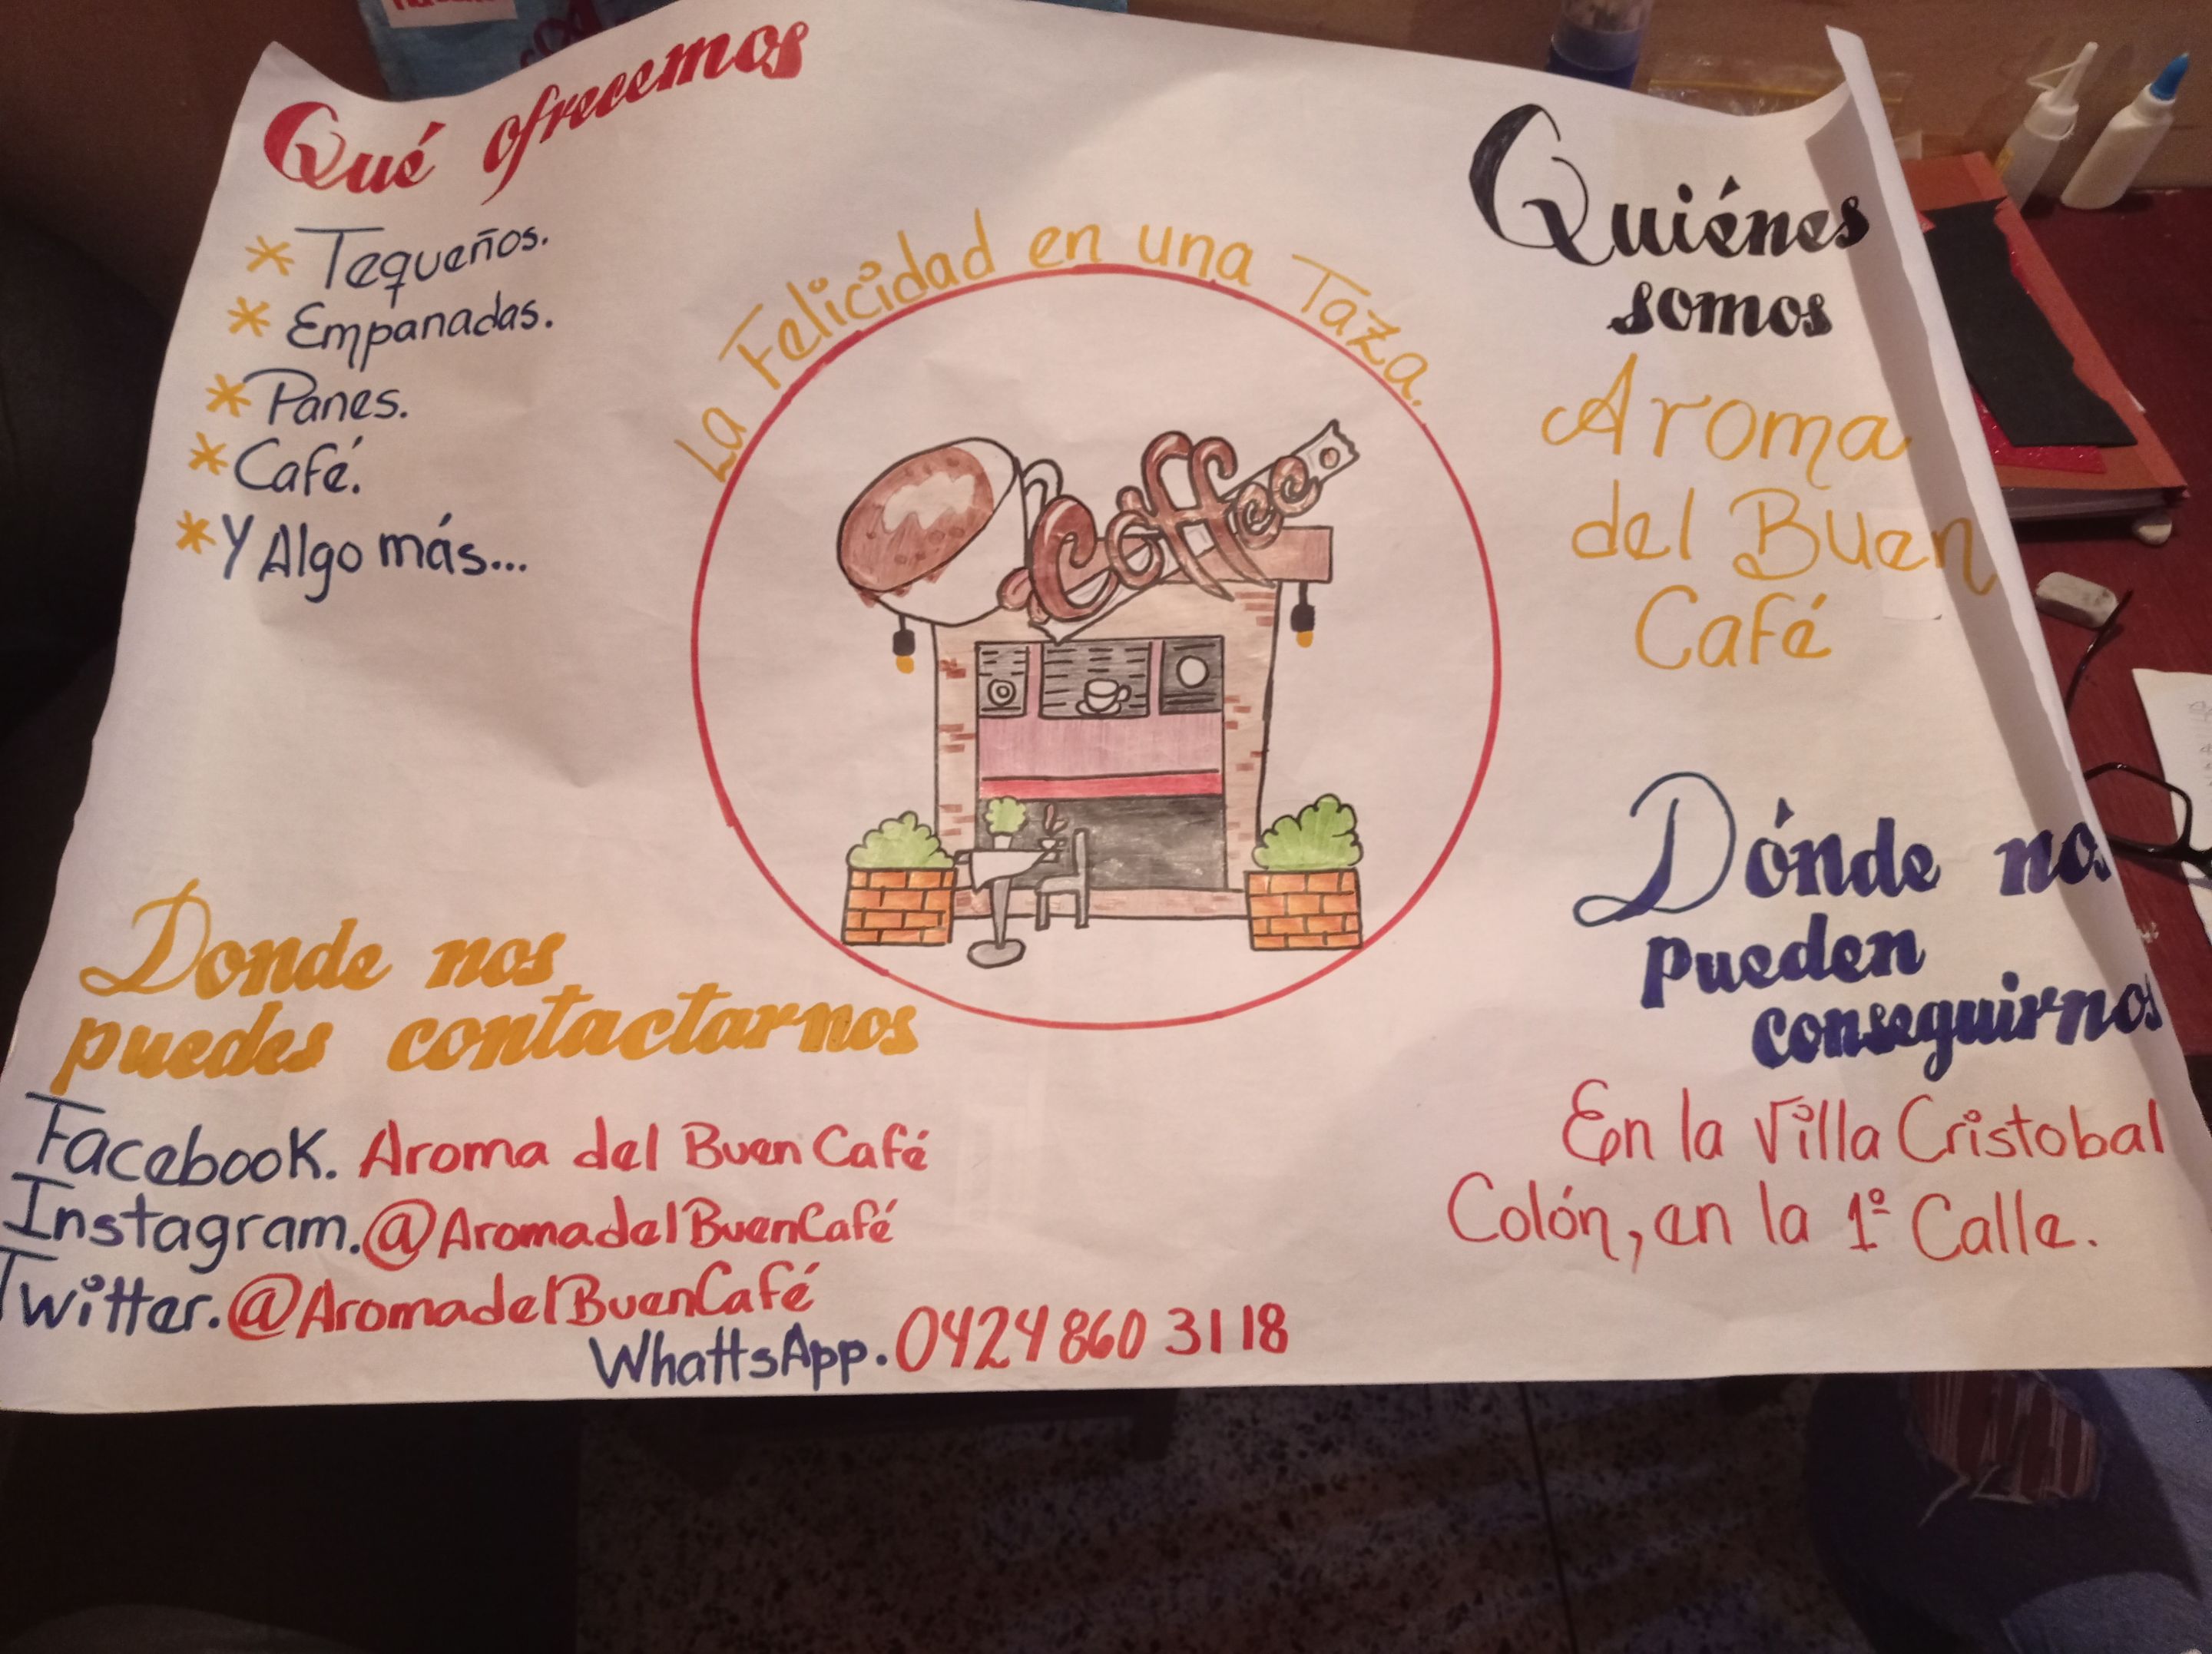 Qué ofrecemos
* Tequeños.
* Empanadas.
* Panes.
* Café.
* Y Algo más...
La Felicidad en una Taza.
Coffee
Quiénes
somos
Aroma
del Buen
Café
Dónde nos
pueden
conseguirnos
En la Villa Cristobal
Colón, en la 1º Calle.
Donde nos
puedes contactarnos
Facebook. Aroma del Buen Café
Instagram. @AromadelBuenCafé
Twitter. @AromadelBuenCafé
WhattsApp. 0424 860 3118